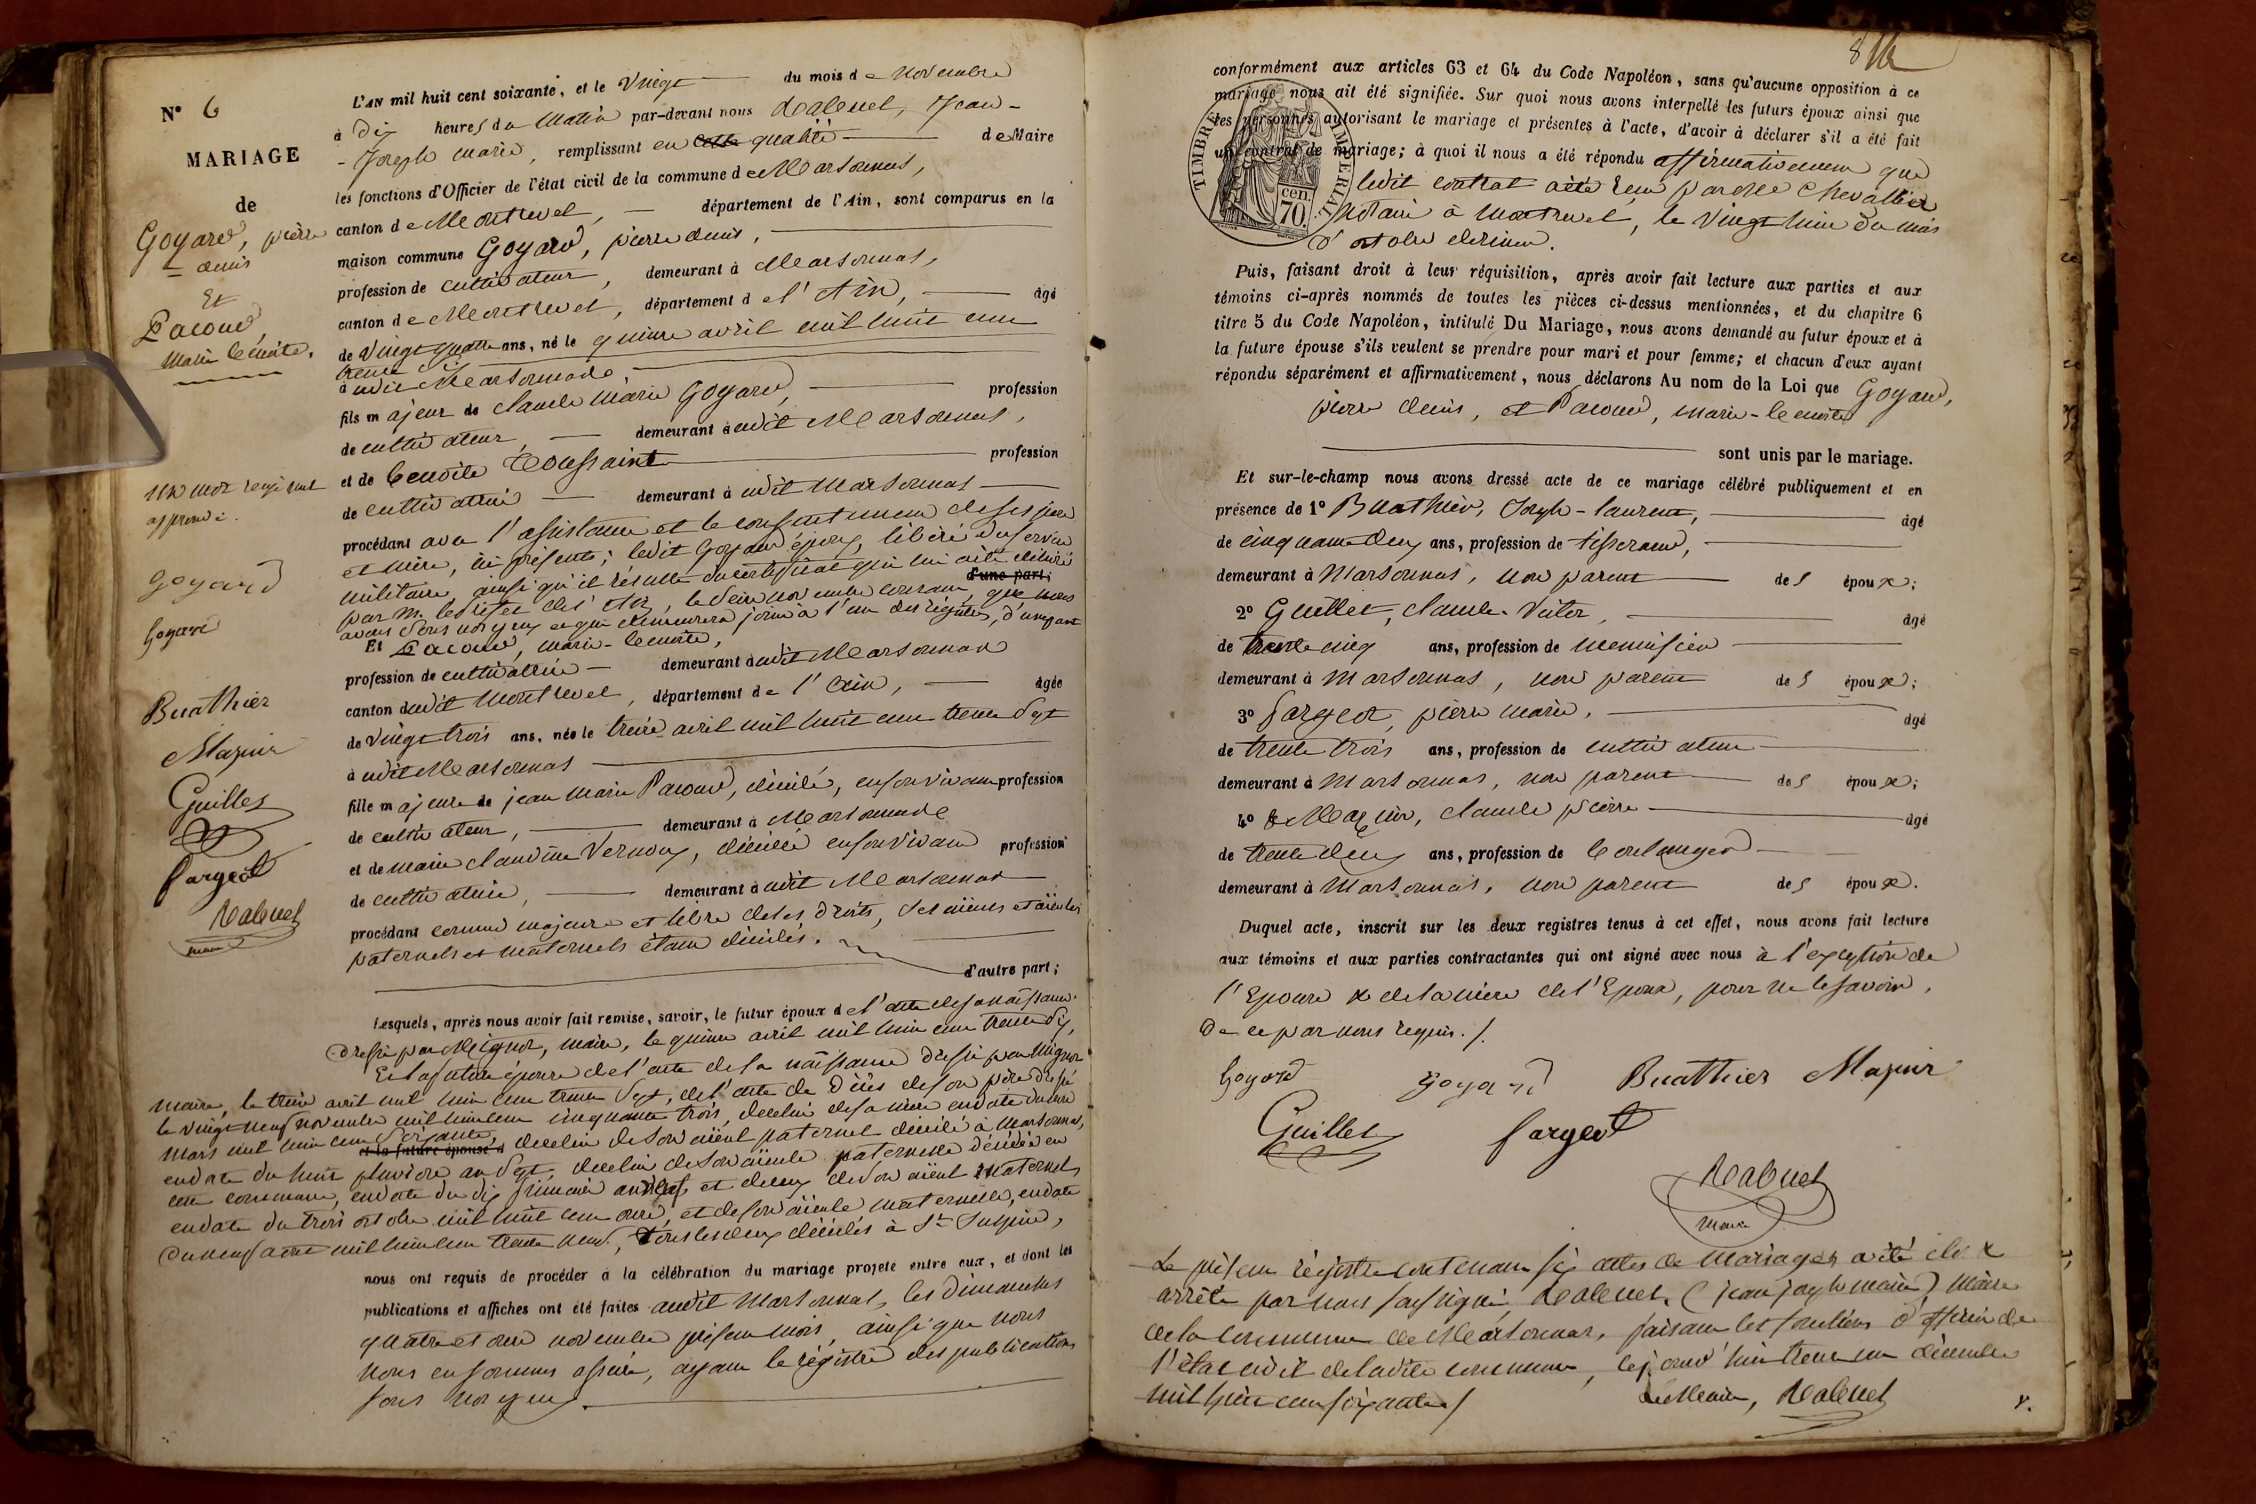 N° 6
MARIAGE
de
Goyard, pierre
denis
Et
Pacoud,
Marie benoite.
un mot rayé nul
approuvé.
Goyard
Goyard
Buathier
Mazuir
Guillet
fargeot
Rabuel
maire
L'AN mil huit cent soixante, et le Vingt du mois de Novembre
à Dix heures du Matin par-devant nous Rabuel, Jean-
-Joseph marie, remplissant en cette qualité de Maire
les fonctions d'Officier de l'état civil de la commune de Marsonnas,
canton de Montrevel, département de l'Ain, sont comparus en la
maison commune Goyard, pierre denis,
profession de cultivateur, demeurant à Marsonnas,
canton de Montrevel, département de l'Ain, âgé
de Vingt quatre ans, né le quinze avril mil huit cent
trente six
à audit Marsonnas
fils majeur de claude Marie Goyard, profession
de cultivateur, demeurant à audit Marsonnas,
et de benoite Toussaint profession
de cultivatrice demeurant à audit Marsonnas
procédant avec l'assistance et le consentement de ses père
et mère, ici présents; ledit Goyard époux, libéré du service
militaire, ainsi qu'il résulte du certificat qui lui a été délivré
d'une part;
par M. le Préfet de l'Ain, le seize novembre courant, que nous
avons sous nos yeux et qui demeurera joint à l'un des registres, d'une part
Et Pacoud, marie-benoite,
profession de cultivatrice demeurant à audit Marsonnas
canton dudit Montrevel, département de l'Ain, âgée
de vingt trois ans, née le treize avril mil huit cent trente sept
à audit Marsonnas
fille majeure de jean marie Pacoud, décédé, en son vivant profession
de cultivateur, demeurant à Marsonnas
et de marie claudine Vernoux, décédée en son vivant profession
de cultivatrice, demeurant à audit Marsonnas
procédant comme majeure et libre de ses droits, ses aïeuls et aïeules
paternels et maternels étant décédés.
d'autre part;
Lesquels, après nous avoir fait remise, savoir, le futur époux de l'acte de sa naissance
dressé par Mignot, maire, le quinze avril mil huit cent trente six,
Et la future épouse de l'acte de sa naissance dressé par Mignot
maire, le treize avril mil huit cent trente sept, de l'acte de décès de son père dressé
le vingt neuf novembre mil huit cent cinquante trois, de celui de sa mère en date du
mars mil huit cent soixante,
et la future épouse d
de celui de son aïeul paternel décédé à Marsonnas,
en date du huit pluviose an sept, de celui de son aïeule paternelle décédée en
cette commune, en date du dix frimaire an et de ceux de son aïeul maternel
en date du trois octobre mil huit cent onze, et de son aïeule maternelle, en date
du neuf août mil huit cent trente neuf, tous les deux décédés à St Sulpice,
nous ont requis de procéder à la célébration du mariage projeté entre eux, et dont les
publications et affiches ont été faites audit Marsonnas, les dimanches
quatre et onze novembre présent mois, ainsi que nous
nous en sommes assuré, ayant le régistre des publications
sous nos yeux.
8
conformément aux articles 63 et 64 du Code Napoléon, sans qu'aucune opposition à ce
mariage nous ait été signifiée. Sur quoi nous avons interpellé les futurs époux ainsi que
les personnes autorisant le mariage et présentes à l'acte, d'avoir à déclarer s'il a été fait
un contrat de mariage; à quoi il nous a été répondu affirmativement que
ledit contrat a été reçu par Me Chevallier
notaire à Montrevel, le vingt huit du mois
d'octobre dernier.
TIMBRE IMPERIAL
70 cen.
Puis, faisant droit à leur réquisition, après avoir fait lecture aux parties et aux
témoins ci-après nommés de toutes les pièces ci-dessus mentionnées, et du chapitre 6
titre 5 du Code Napoléon, intitulé Du Mariage, nous avons demandé au futur époux et à
la future épouse s'ils veulent se prendre pour mari et pour femme; et chacun d'eux ayant
répondu séparément et affirmativement, nous déclarons Au nom de la Loi que Goyard,
pierre denis, et Pacoud, marie-benoite
sont unis par le mariage.
Et sur-le-champ nous avons dressé acte de ce mariage célébré publiquement et en
présence de 1° Buathier, Joseph-laurent, âgé
de cinquante deux ans, profession de tisserand,
demeurant à Marsonnas, non parent des époux;
2° Guillet, claude-Victor, âgé
de trente cinq ans, profession de menuisier
demeurant à Marsonnas, non parent des époux;
3° fargeot, pierre marie, âgé
de trente trois ans, profession de cultivateur
demeurant à Marsonnas, non parent des époux;
4° Mazuir, claude pierre âgé
de trente deux ans, profession de boulanger
demeurant à Marsonnas, non parent des époux.
Duquel acte, inscrit sur les deux registres tenus à cet effet, nous avons fait lecture
aux témoins et aux parties contractantes qui ont signé avec nous à l'exception de
l'Epouse & de la mère de l'Epoux, pour ne le savoir,
de ce par nous requis./.
Goyard Goyard Buathier Mazuir
Guillet fargeot
Rabuel
maire
Le présent régistre contenant six actes de mariages a été clos &
arrêté par nous soussigné, Rabuel, (jean joseph marie) Maire
de la commune de Marsonnas, faisant les fonctions d'officier de
l'état civil de ladite commune, cejourd'hui trente un décembre
mil huit cent soixante./
Le Maire, Rabuel